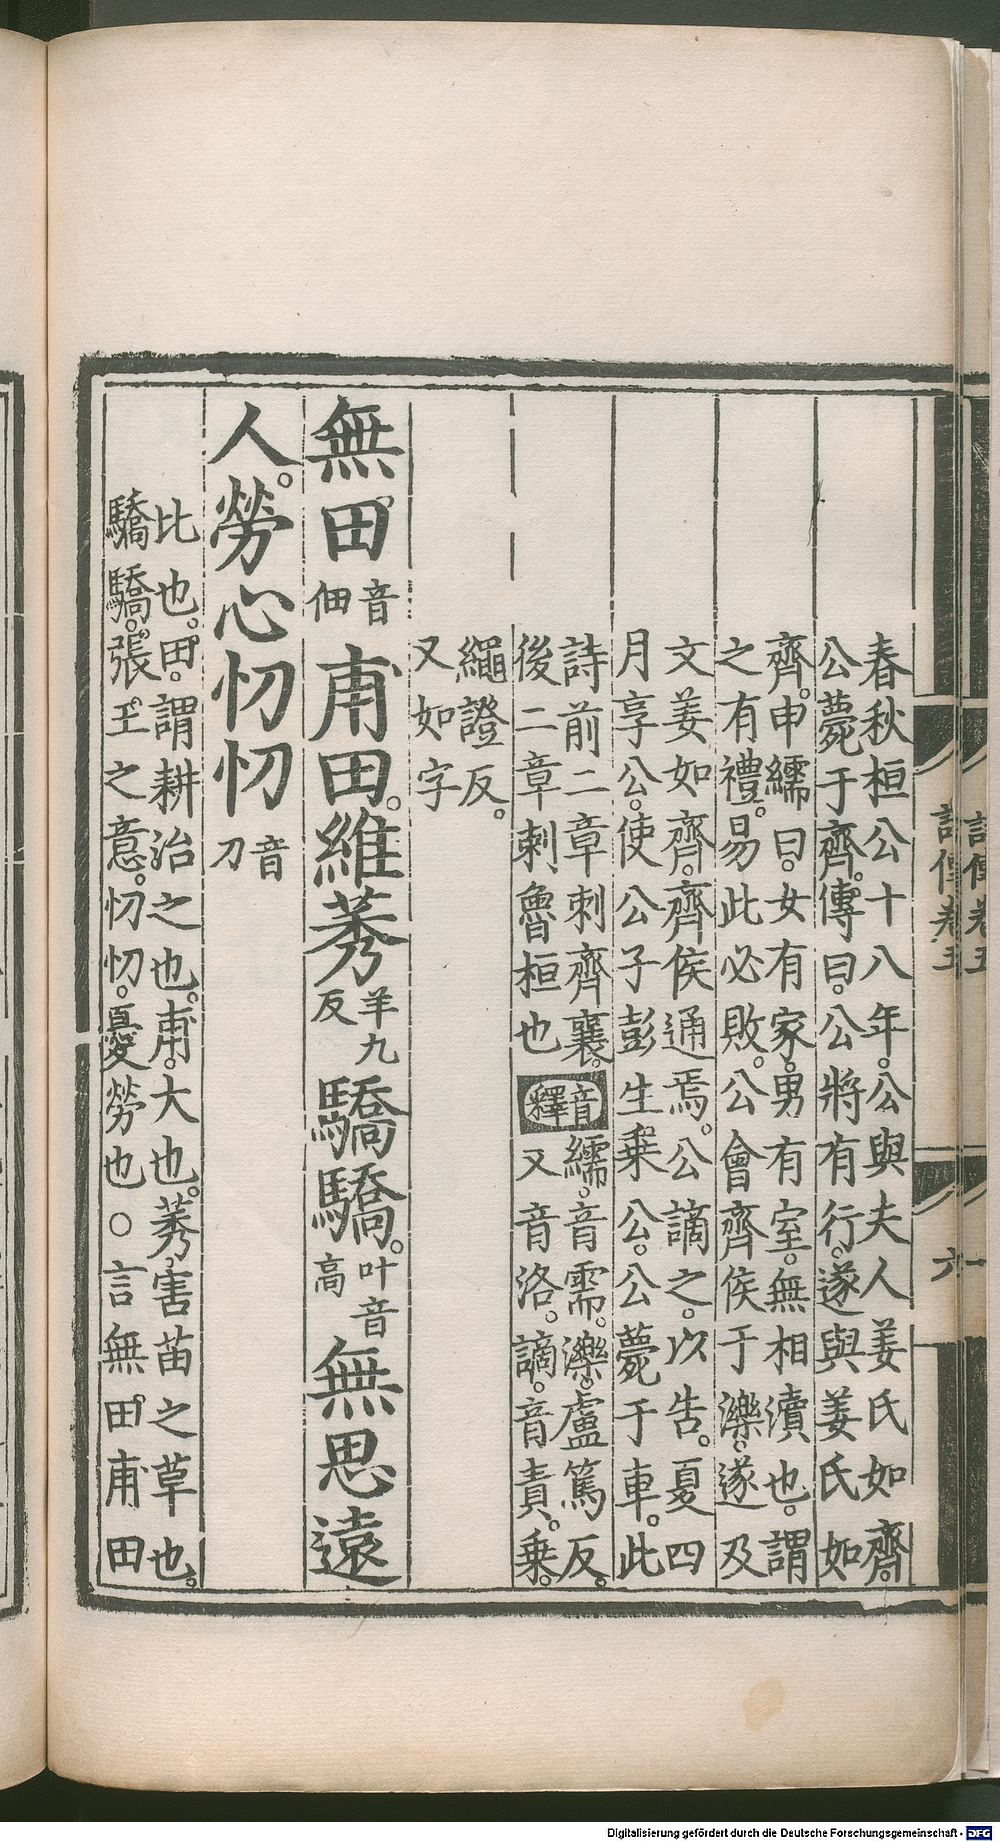 春秋桓公十八年。公與夫人姜氏如齊。
公薨于齊。傳曰。公將有行。遂與姜氏如
齊。申繻曰。女有家。男有室。無相瀆也。謂
之有禮。易此必敗。公會齊侯于濼。遂及
文姜如齊。齊侯通焉。公謫之。以告。夏四
月享公。使公子彭生乘公。公薨于車。此
詩前二章刺齊襄。
後二章刺魯桓也
音釋
繻。音需。濼。盧篤反。
又音洛。謫。音責。乗。
繩證反。
又如字
無田音佃甫田。維莠羊九反驕驕。叶音高無思遠
人。勞心忉忉音刀
比也。田。謂耕治之也。甫。大也。莠。害苗之草也。
驕驕。張王之意。忉忉。憂勞也○言無田甫田
詩傳卷五
六
詩傳卷五
Digitalisierung gefördert durch die Deutsche Forschungsgemeinschaft - DFG